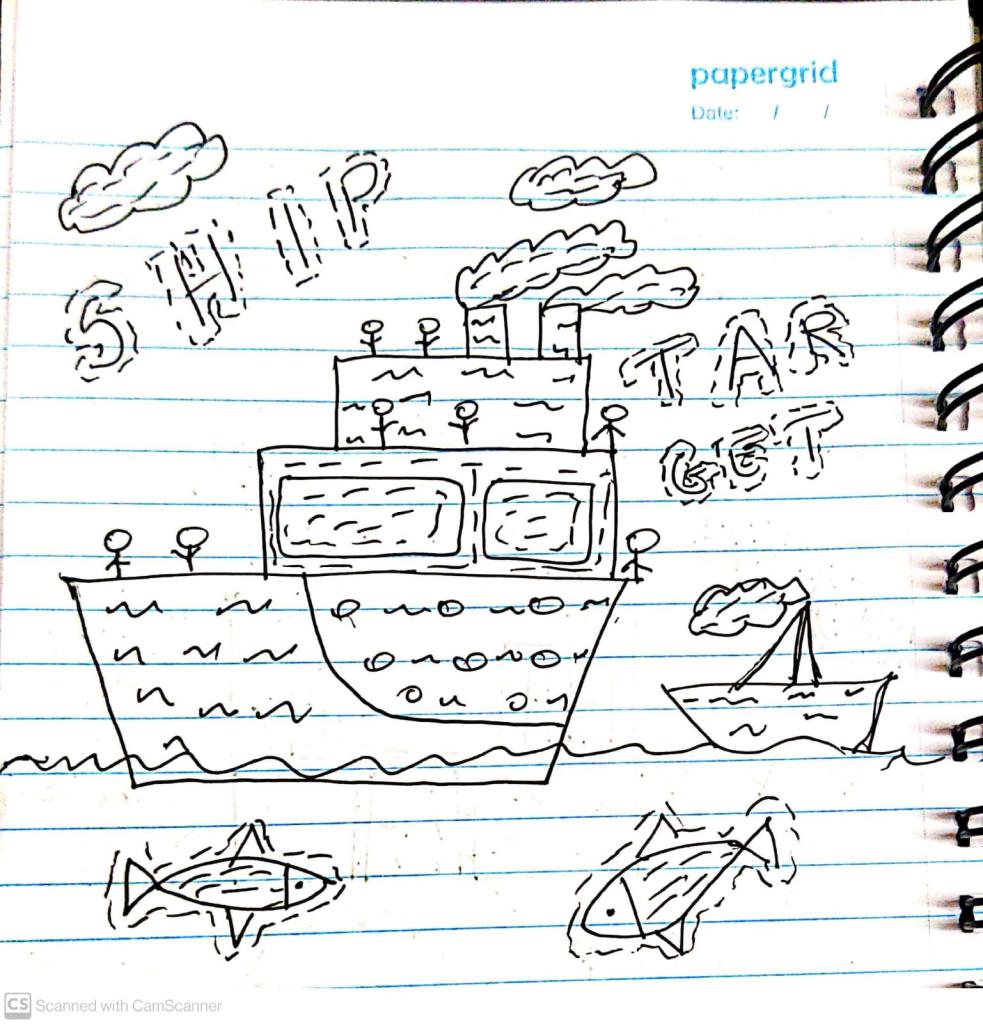 papergrid
Date: / /
SHIP
TAR
GET
CS Scanned with CamScanner